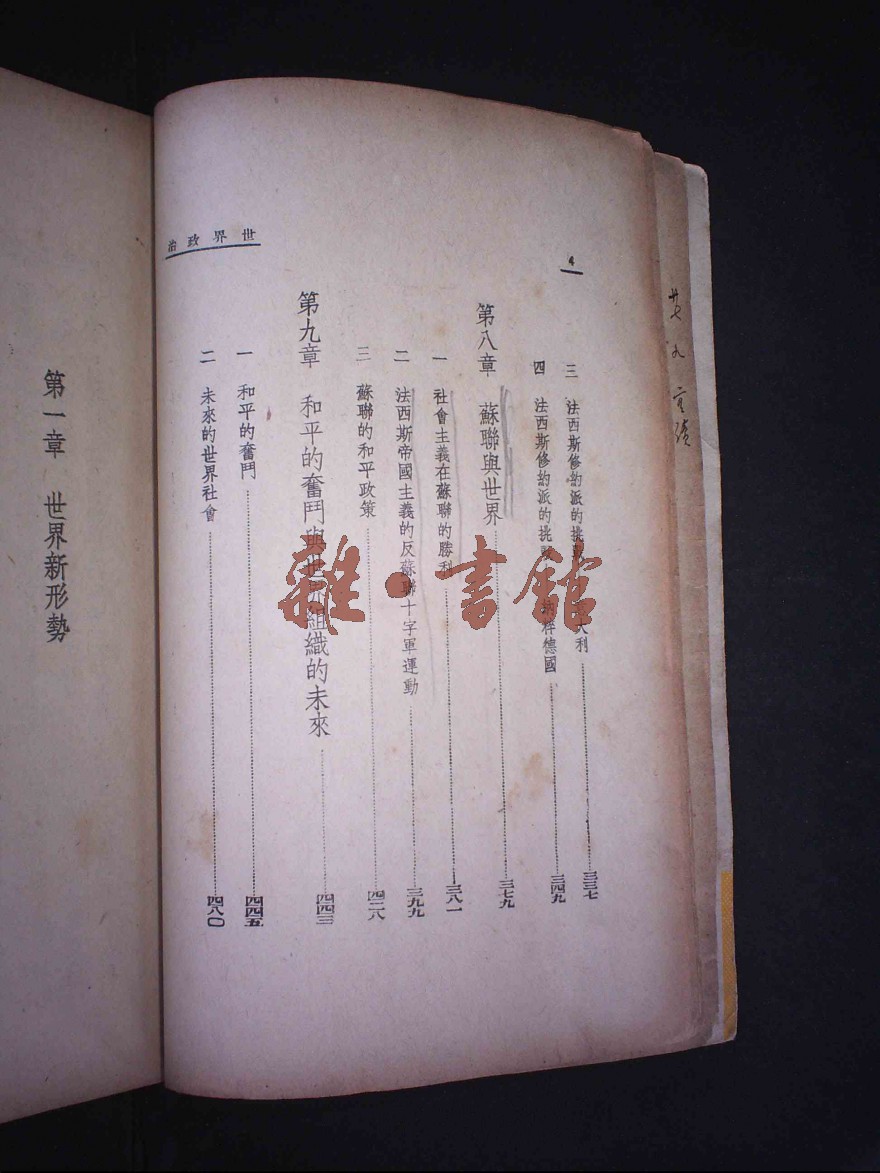 世界政治
4
三 法西斯修約派的挑戰 大利 三三七
四 法西斯修約派的挑戰 納粹德國 三四九
第八章 蘇聯與世界 三七九
一 社會主義在蘇聯的勝利 三八一
二 法西斯帝國主義的反蘇聯十字軍運動 三九九
三 蘇聯的和平政策 四二八
第九章 和平的奮鬥與世界組織的未來 四四三
一 和平的奮鬥 四四五
二 未來的世界社會 四八〇
第一章 世界新形勢
雜·書館